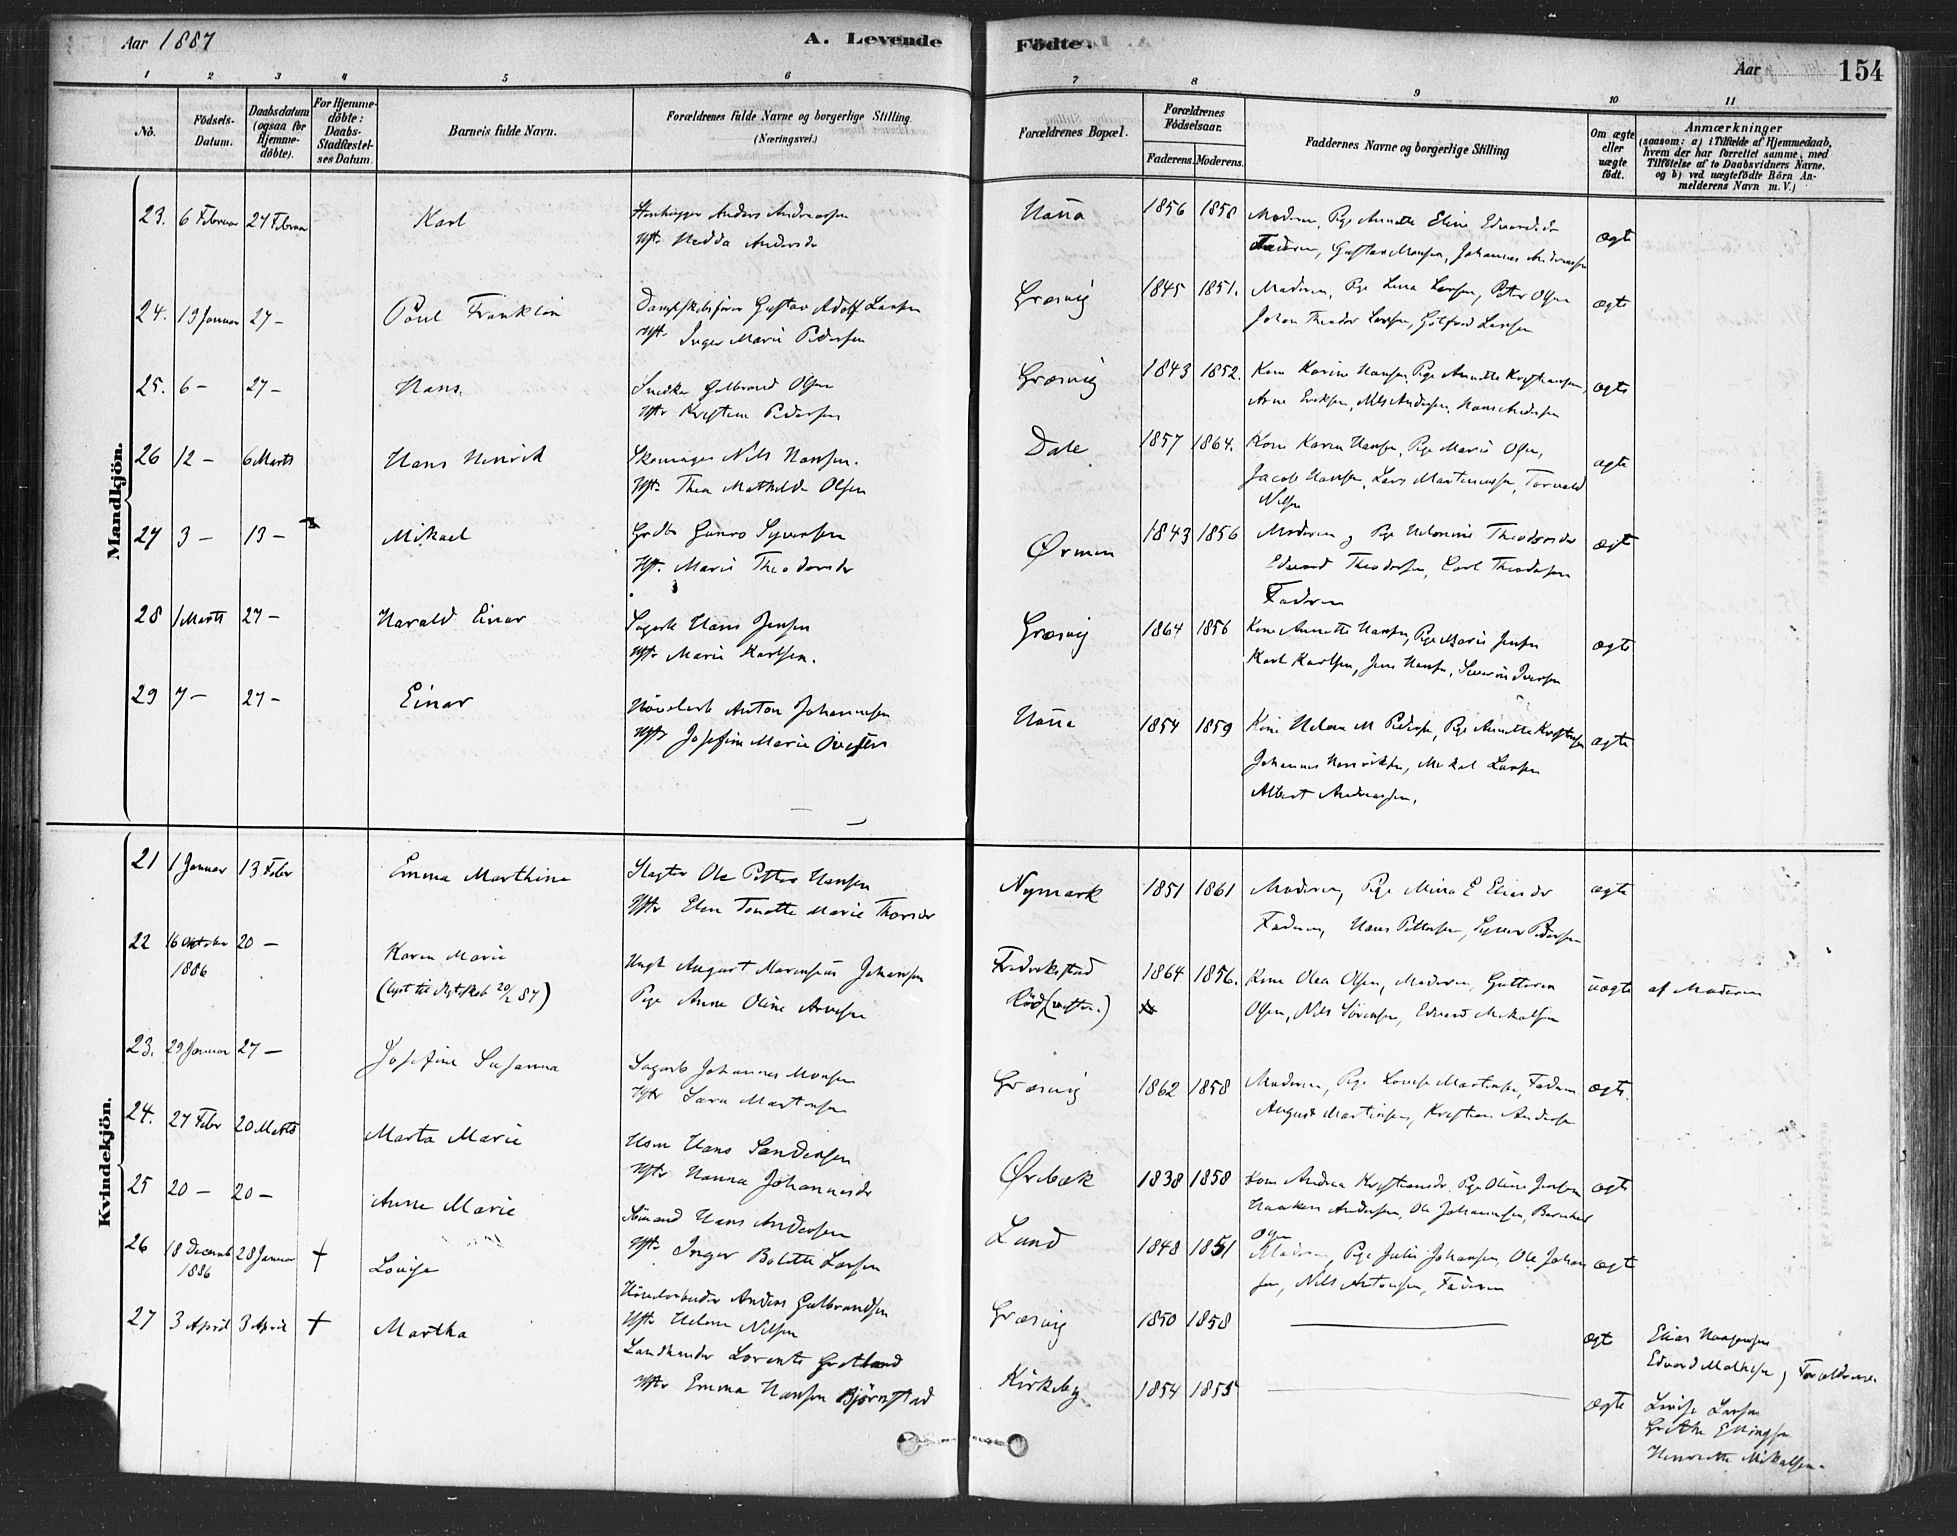 Aar 1887
A. Levende Födte.
Aar 154
1 2 3 4 5 6 7 8 9 10 11
No.
Födsels-
Datum.
Daabsdatum
(ogsaa for
Hjemme-
döbte).
For Hjemme-
döbte:
Daabs-
Stadfæstel-
ses Datum.
Barnets fulde Navn.
Forældrenes fulde Navne og borgerlige Stilling.
(Næringsvei.)
Forældrenes Bopæl.
Forældrenes
Födselsaar.
Faderens. Moderens.
Faddernes Navne og borgerlige Stilling
Om ægte
eller
uægte
födt.
Anmærkninger
(saasom: a) i Tilfælde af Hjemmedaab,
hvem der har forrettet samme, med
Tilföielse af to Daabsvidners Navne,
og b) ved uægtefödte Börn An-
melderens Navn m. V.)
Mandkjön.
23. 6 Februar 27 Februar Karl
Stenhugger Anders Andreassen
Hst. Hedda Andersdr
1856 1858 Moderen, Pige Annette Eline Edvardsdr
Faderen, Gustav Monsen, Johannes Andreassen
ægte
24. 19 Januar 27 – Poul Franklin
Dampskibsfører Gustav Adolf Larsen
Hst. Inger Marie Pedersen
Græsvig 1845 1851. Moderen, Pige Lina Larsen, Peter Olsen
Johan Theodor Larsen, Gölfred Larsen
ægte
25. 6 – 27 – Hans
Snedker Gulbrand Olsen
Hstr Kristine Pedersen
Græsvig 1843 1852. Kone Karine Hansen, Pige Annette Kristiansen,
Arne Eriksen, Nils Andersen, Hans Andersen
ægte
26 12 – 6 Marts Hans Henrik
Skomager Nils Hansen.
Hst. Thea Mathilde Olsen
Dale 1857 1864. Kone Karen Hansen, Pige Marie Olsen,
Jacob Hansen, Lars Martinussen, Torvald
Nilsen
ægte
27 3 – 13 – Mikael
Grdbr Syversen
Hst. Marie Theodorsdr
Ørmen 1843 1856 Moderen og Pige Theodorsdr
Edvard Theodorsen, Carl Theodorsen
Faderen
ægt
28 1 Marts 27 – Harald Einar
Sagarb Hans Jensen
Hstr Marie Karlsen.
Græsvig 1864 1856 Kone Annette Hansen, Pige Marie Jensen
Karl Karlsen, Jens Hansen, Severin Iversen
ægte
29 7 – 27 – Einar
Hövlarb Anton Johannesen
Hstr Josefine Marie
1854 1859 Kone Helene M Pedersen, Pige Annette Kristensen
Johannes Henriksen, Mikal Larsen
Albert Andreassen,
ægte
Kvindekjön.
21 1 Januar 13 Febr Emma Marthine
Slagter Ole Petter Hansen
Hstr Elen Tonette Marie Thorsdr
Nymark 1851 1861 Moderen, Pige Mina E Eliasdr
Faderen, Hans Pettersen, Syver Pedersen
ægte
22 16 Oktober 20 –
1886
Karen Marie
(lyst til Ægteskab 20/2 87)
Ungk August Marensius Johansen
Pige Anne Oline Arnesen
Fredrikstad
1864 1856. Kone Olea Olsen, Moderen, Guttorm
Olsen, Nils Sörensen, Edvard Mikalsen
uægte af Moderen
23. 29 Januar 27 – Josefine Susanna
Sagarb Johannes Monsen
Hstr Sara Martinsen
Græsvig 1862 1858 Moderen, Pige Lovise Martinsen, Faderen
August Martinsen, Kristian Andersen
ægte.
24. 27 Febr 20 Marts Marta Marie
Hsm Hans Sandersen
Hstr Hanna Johannesdr
Ørebæk 1838 1858 Kone Andrea Kristiansdr. Pige Oline Jensen
Haaken Andersen, Ole Johannesen, Bernhard
Olsen
ægte
25 20 – 20 – Anne Marie
Sömand Hans Andersen
Hstr Inger Bolette Larsen
Lund 1848 1851 Moderen, Pige Julie Johansen, Ole Johan
sen, Nils Antonsen, Faderen
ægt
26 18 Decemb 28 Januar †
1886
Lovise
Hövlarbeider Anders Gulbrandsen
Hstr Helene Nilsen
Græsvig 1850 1858
ægt
Elias Haagensen
Edvard Mathisen, Forældrene
27 3 April 3 April † Martha
Landhandler Lorents Grotland
Hstr Emma Hansen Björnstad
Kirkeby 1854 1855
ægte
Lovise Larsen
Grethe Ellingsen
Henriette Mikalsen.